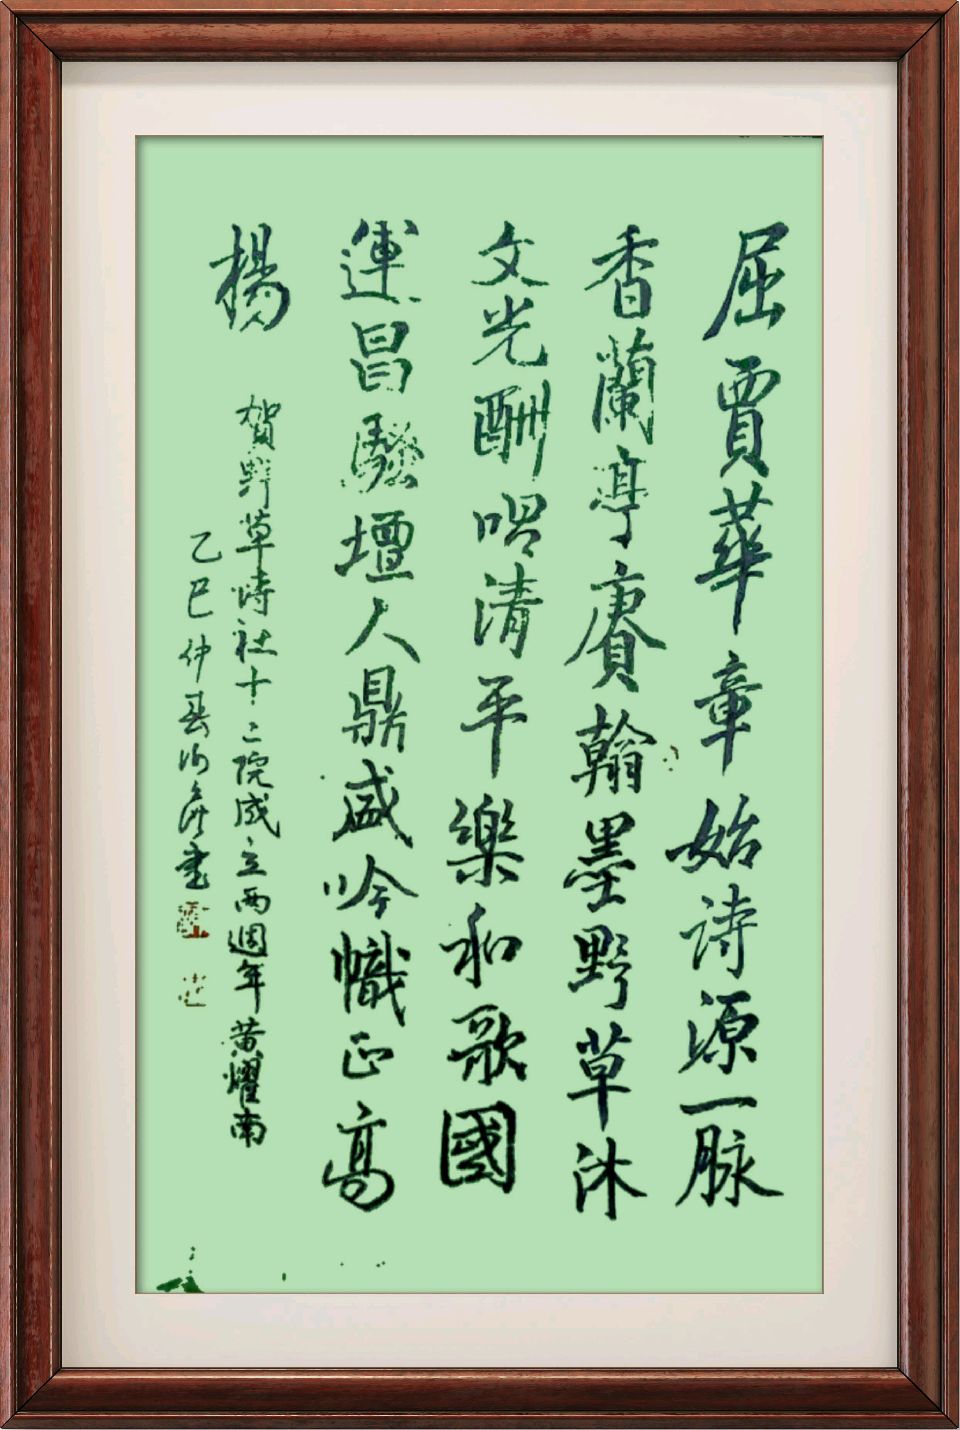 屈賈華章始詩源一脉
香蘭亭賡翰墨野草沐
文光酬唱清平樂和歌國
運昌騷壇人鼎盛吟幟正高
楊
賀野草詩社十二院成立兩週年黃耀南
乙巳仲春
書